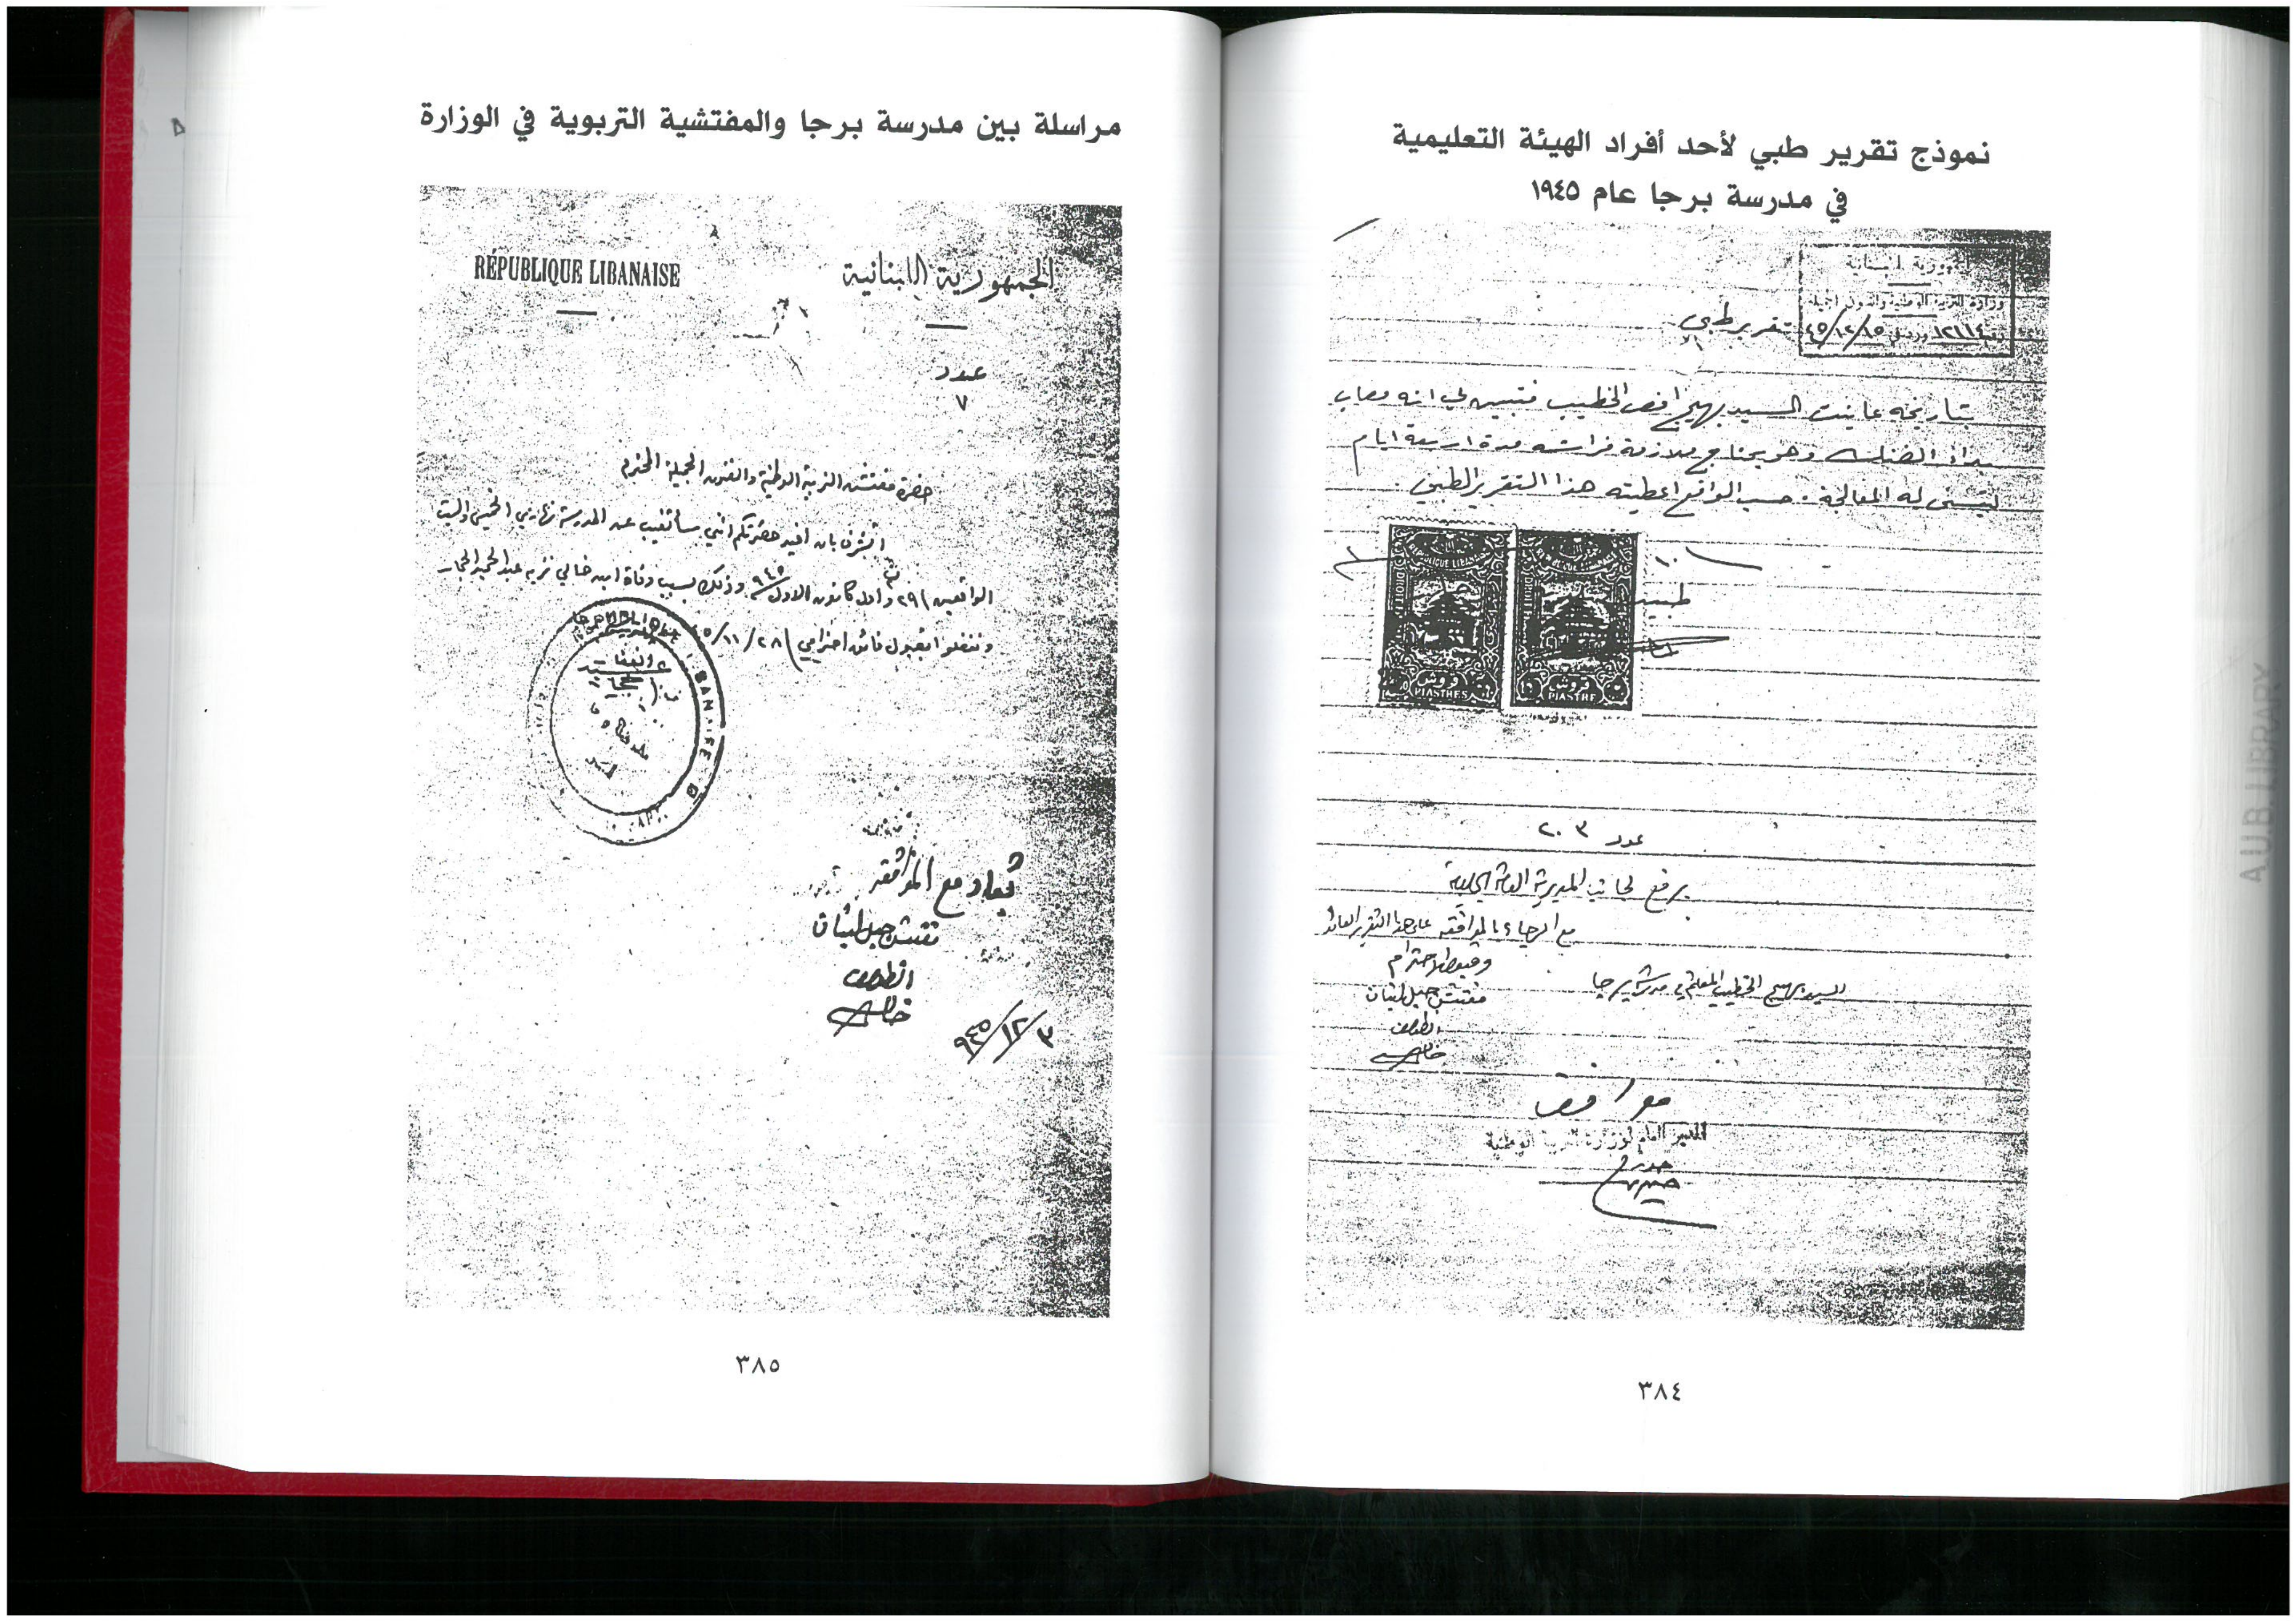 نموذج تقرير طبي لأحد أفراد الهيئة التعليمية
في مدرسة برجا عام ١٩٤٥
وزارة التربية الوطنية والفنون الجميلة
٤٥/١٢/١٥
تقرير طبي
بتاريخه عاينت السيد بهيج الخطيب فتبين لي انه مصاب
وهو يحتاج ملازمة فراشه مدة اربعة ايام
ليتسنى له المعالجة. حسب الواقع اعطيته هذا التقرير الطبي.
طبيب
قروش
PIASTRES
قروش
PIASTRE
عدد ٢٠٣
يرفع لجانب المديرية العامة الجليلة
مع الرجاء بالموافقة على هذا التقرير العائد
السيد بهيج الخطيب المعلم في مدرسة برجا
مفتش جبل لبنان
موافق
المدير العام لوزارة التربية الوطنية
٣٨٤
مراسلة بين مدرسة برجا والمفتشية التربوية في الوزارة
RÉPUBLIQUE LIBANAISE
الجمهورية اللبنانية
عدد
٧
حضرة مفتش التربية الوطنية والفنون الجميلة المحترم
اتشرف بان افيد حضرتكم انني سأتغيب عن المدرسة نهاري الخميس والسبت
الواقعين ٢٩ واول كانون الاول ٩٤٥ وذلك بسبب وفاة ابن خالي نزيه عبد الحميد
وتفضلوا بقبول فائق احترامي ٢٨/١١/٤٥
تُعاد مع الموافقة
مفتش جبل لبنان
٩٤٥/١٢/٣
٣٨٥
A.U.B. LIBRARY